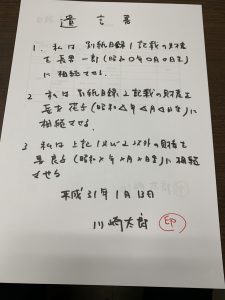 遺言書
1. 私は別紙目録1記載の財産
を長男一郎(昭和〇年〇月〇日生)に
相続させる.
2 私は別紙目録2記載の財産を
長女花子(昭和△年△月△日生)に
相続させる.
3 私は上記1及び2以外の財産を
(昭和×年×月×日生)に相続
させる
平成31年1月13日
川崎太郎 印